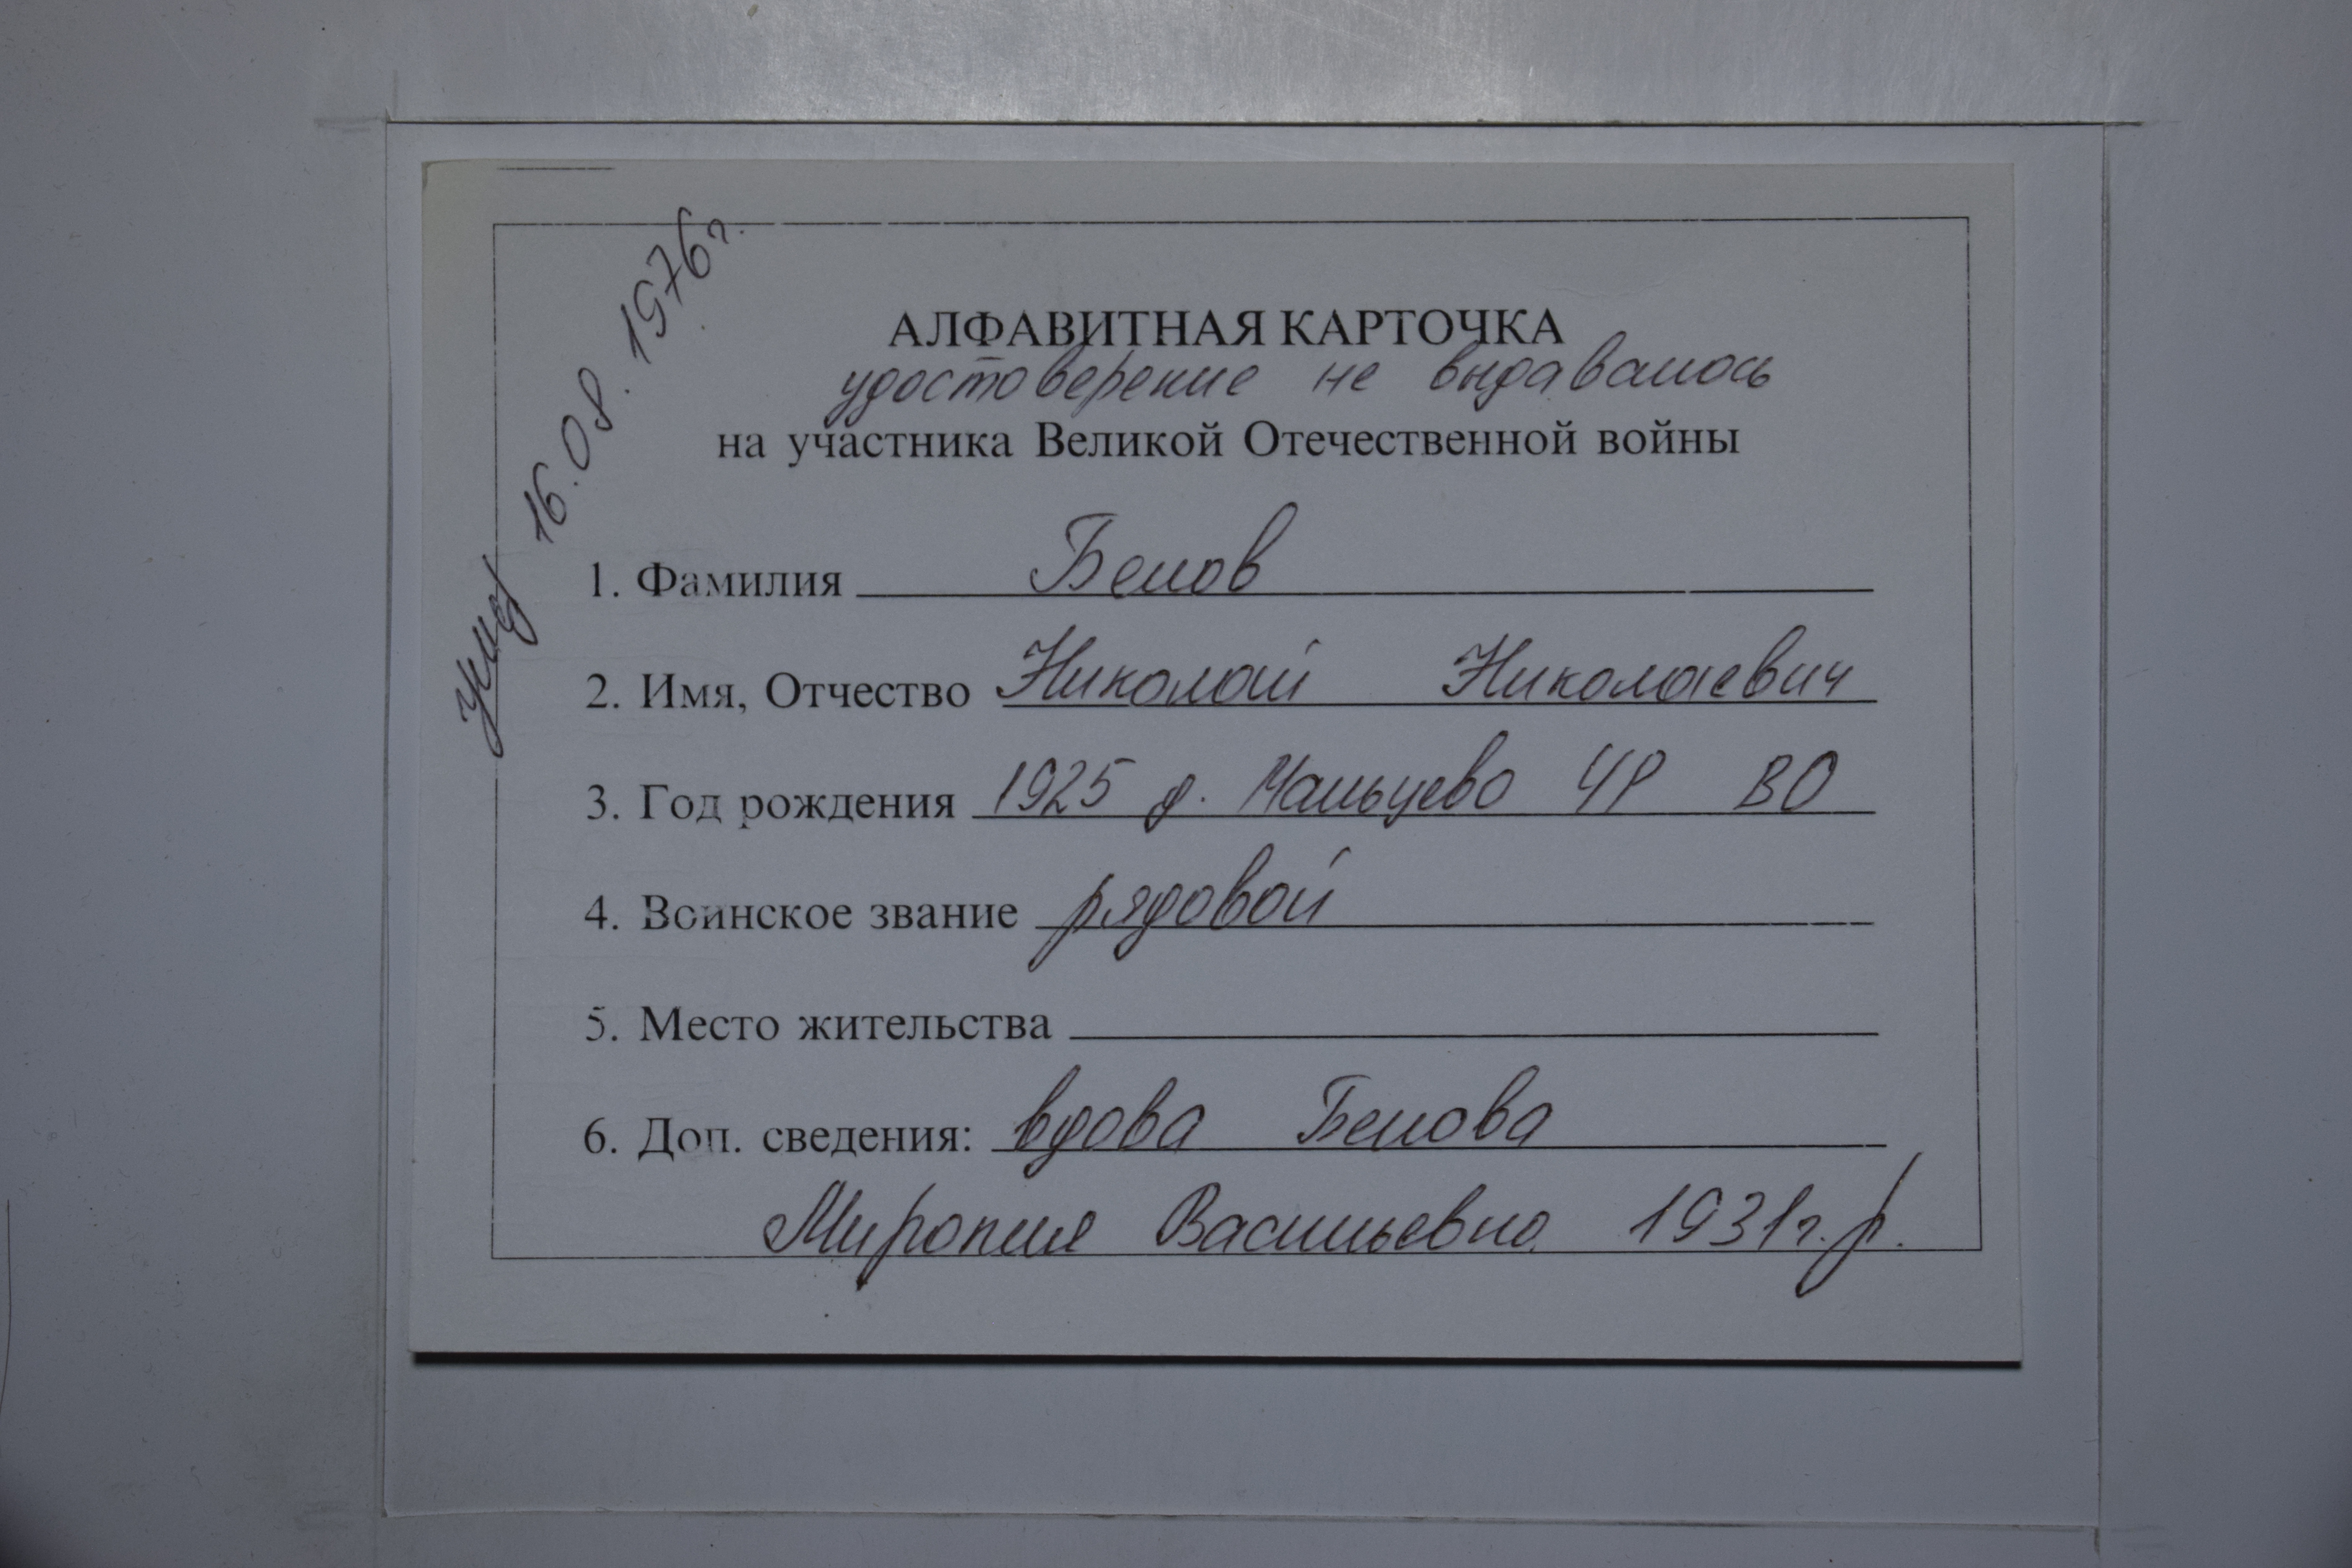 Умер 16.08.1976г.
АЛФАВИТНАЯ КАРТОЧКА
удостоверение не выдавалось
на участника Великой Отечественной войны
1. Фамилия Белов
2. Имя, Отчество Николай Николаевич
3. Год рождения 1925 д. Мальцево ЧР ВО
4. Воинское звание рядовой
5. Место жительства
6. Доп. сведения: вдова Белова
Миропия Васильевна 1931г.р.